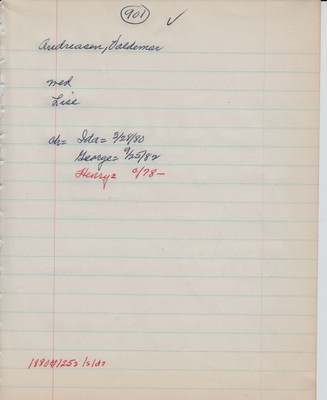 901 ✓
Andreasen, Valdemar
med
Lise
ch= Ida= 3/28/80
George= 9/25/82
Henry= 0/78-